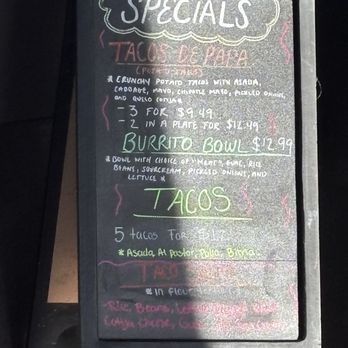 SPECIALS
TACOS DE PAPA
(POTATO TACOS)
* CRUNCHY POTATO TACOS WITH ASADA,
CABBAGE, MAYO, CHIPOTLE MAYO, PICKLED ONION,
AND QUESO COTIJA *
- 3 FOR $9.49
- 2 IN A PLATE FOR $12.49
BURRITO BOWL $12.99
* BOWL WITH CHOICE OF MEAT, GUAC, RICE
BEANS, SOURCREAM, PICKLED ONIONS, AND
LETTUCE *
TACOS
5 tacos FOR
* Asada, Al pastor, Pollo, Birria
TACO
* IN FLOUR
Rice, Beans,
Cotija Cheese,